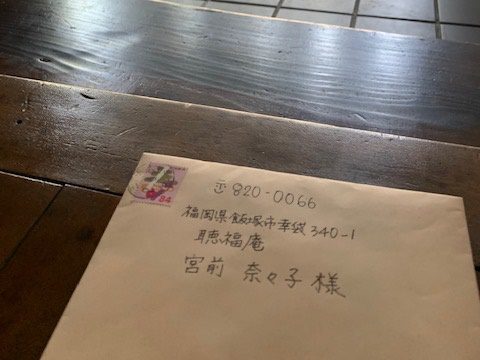 84
〒820-0066
福岡県飯塚市幸袋340-1
聴福庵
宮前 奈々子 様